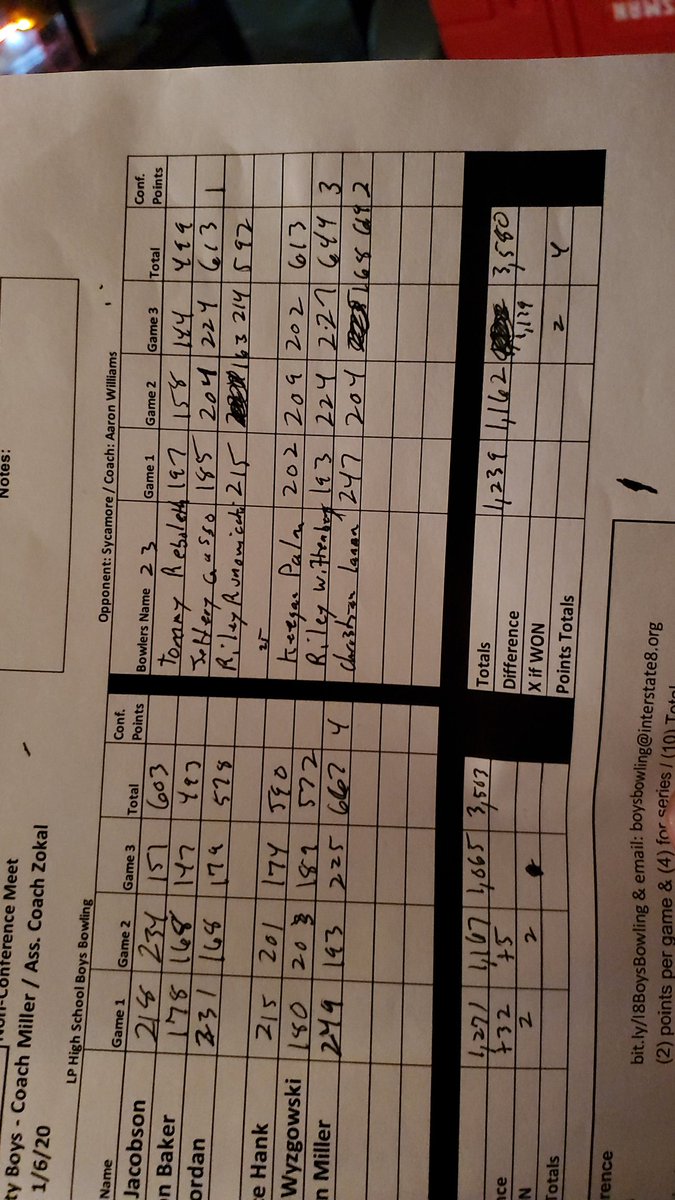 Non-Conference Meet
ty Boys - Coach Miller / Ass. Coach Zokal
1/6/20
Notes:
LP High School Boys Bowling
Opponent: Sycamore / Coach: Aaron Williams
Name Game 1 Game 2 Game 3 Total Conf. Points Bowlers Name 23 Game 1 Game 2 Game 3 Total Conf. Points
Jacobson 218 234 151 603 Tommy 197 158 144 499
n Baker 178 168 147 493 185 204 224 613 1
ordan 231 168 179 578 Riley 215 163 214 592
e Hank 215 201 174 590 Keegan Palm 202 209 202 613
Wyzgowski 180 203 189 572 Riley 193 224 227 644 3
n Miller 249 193 225 667 4 Christian 247 204 168 619 2
1,271 1,167 1,065 3,503 Totals 1,239 1,162 1,179 3,580
nce +32 +5 Difference
N 2 2 X if WON 2 4
otals Points Totals
rence
bit.ly/I8BoysBowling & email: boysbowling@interstate8.org
(2) points per game & (4) for series / (10) Total